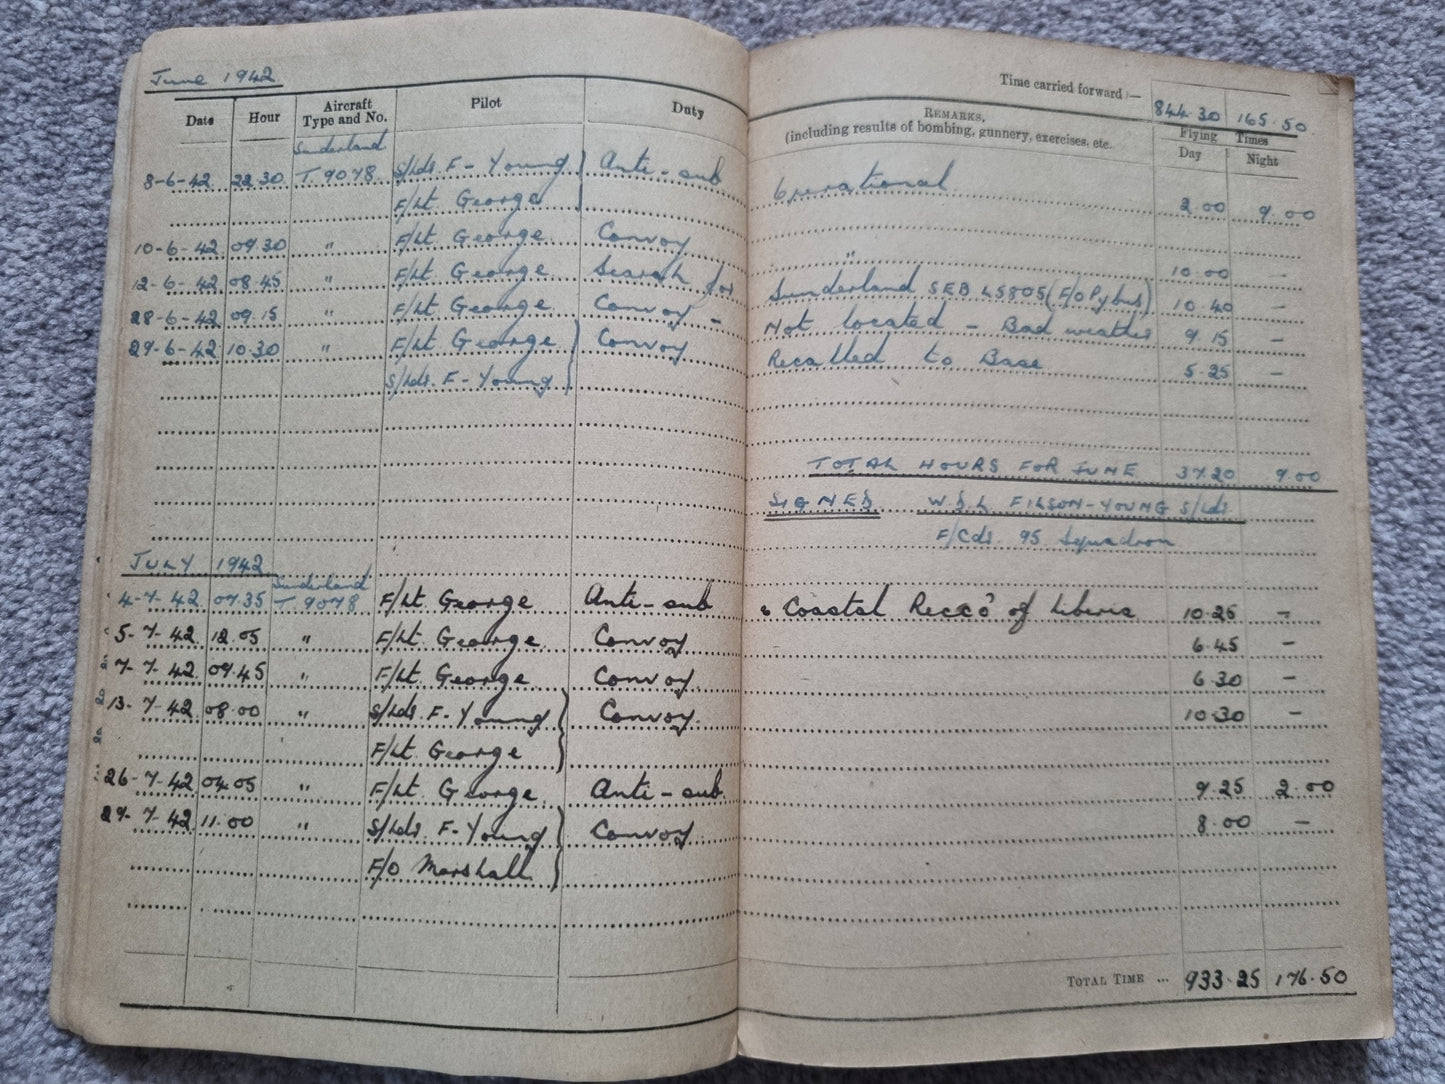 June 1942
Time carried forward :— 844.30 165.50
Date Hour Aircraft Type and No. Pilot Duty REMARKS, (including results of bombing, gunnery, exercises, etc. Flying Times Day Night
Sunderland
8-6-42 22.30 T 9078 S/Ldr. F-Young Anti-sub Operational 2.00 9.00
F/Lt George
10-6-42 09.30 " F/Lt George Convoy " 10.00 —
12-6-42 08.45 " F/Lt George Search for Sunderland SEB L5805 (F/O Pybus) 10.40 —
28-6-42 09.15 " F/Lt George Convoy - Not located - Bad weather 9.15 —
29-6-42 10.30 " F/Lt George Convoy Recalled to Base 5.25 —
S/Ldr. F-Young
TOTAL HOURS FOR JUNE 37.20 9.00
SIGNED W.S.L FILSON-YOUNG S/Ldr.
F/Cdr. 95 Squadron
JULY 1942
Sunderland
4-7-42 07.35 T 9078 F/Lt George Anti-sub & Coastal Recco of Liberia 10.25 —
5-7-42 12.05 " F/Lt George Convoy 6.45 —
7-7-42 09.45 " F/Lt George Convoy 6.30 —
13-7-42 08.00 " S/Ldr. F-Young Convoy 10.30 —
F/Lt George
26-7-42 04.05 " F/Lt George Anti-sub 9.25 2.00
29-7-42 11.00 " S/Ldr. F-Young Convoy 8.00 —
F/O Marshall
TOTAL TIME ... 933.25 176.50